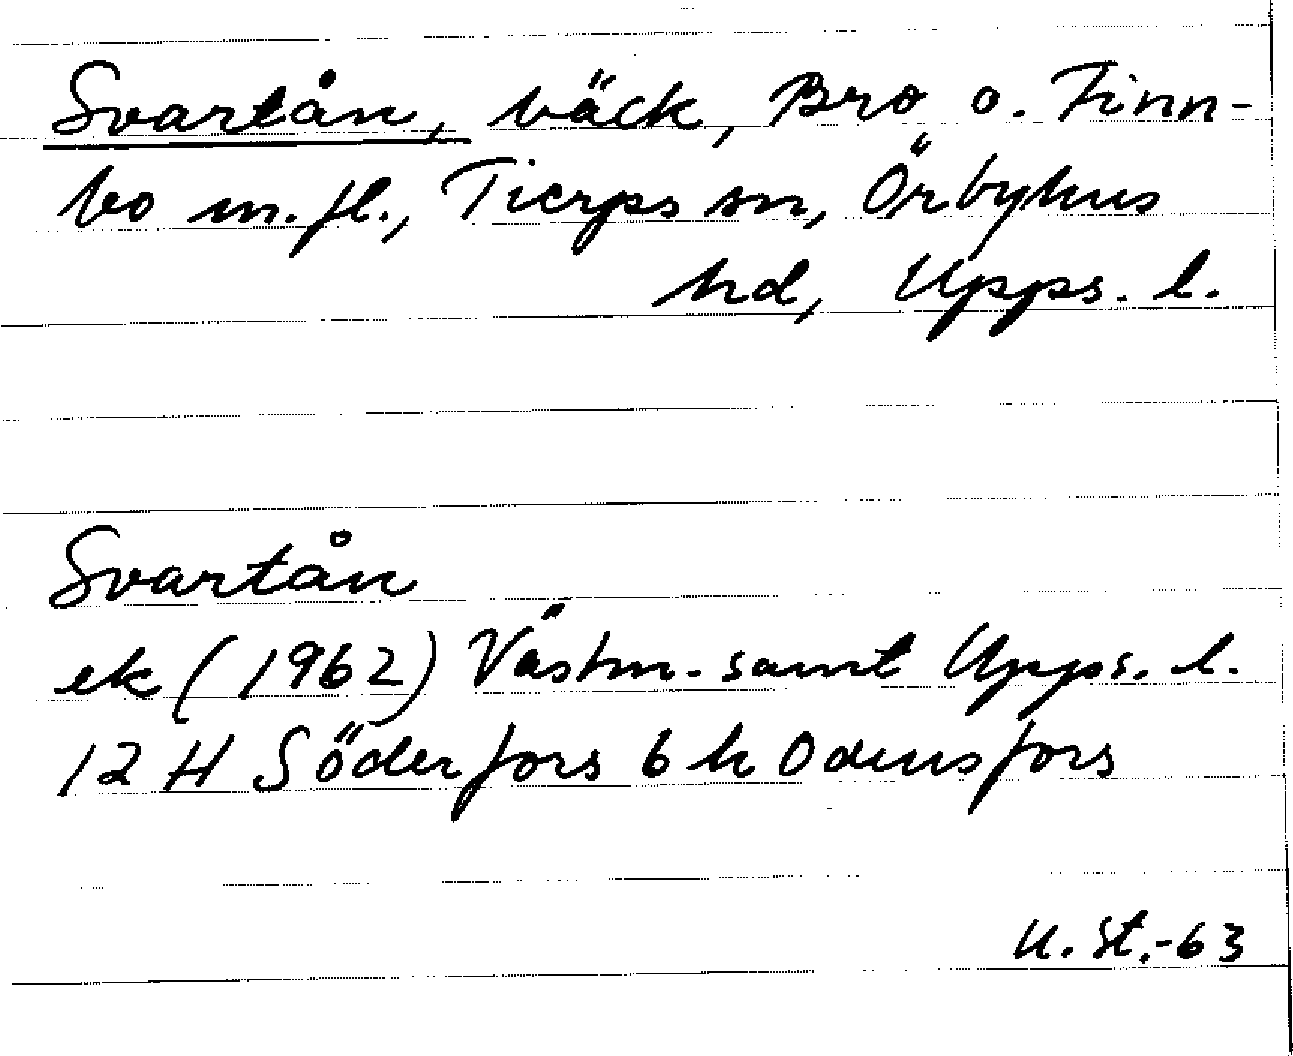 Svartån, bäck, Bro o. Finn-
bo m.fl., Tierps sn, Örbyhus
hd, Upps. l.
Svartån
ek (1962) Västm. samt Upps. l.
12 H Söderfors 6 h Odensfors
U. St. -63